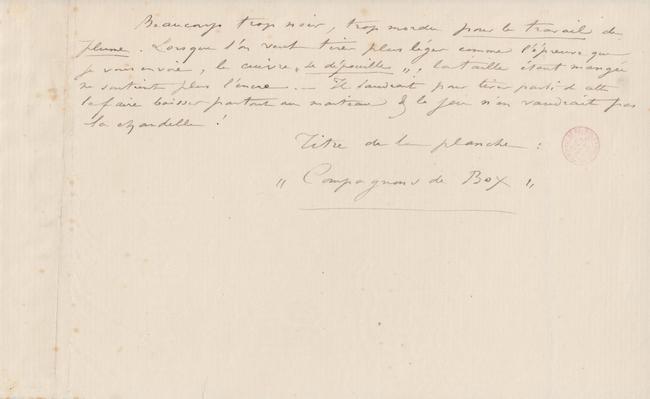 Beaucoup trop noir, trop mordu pour le travail de
plume. Lorsque l'on veut tirer plus léger comme l'épreuve que
je vous envoie, le cuivre "se dépouille", la taille étant mangée
ne soutient plus l'encre. — Il faudrait pour tirer parti d
la faire baisser partout au marteau & le jeu n'en vaudrait pas
la chandelle!
Titre de la planche:
"Compagnons de Box"